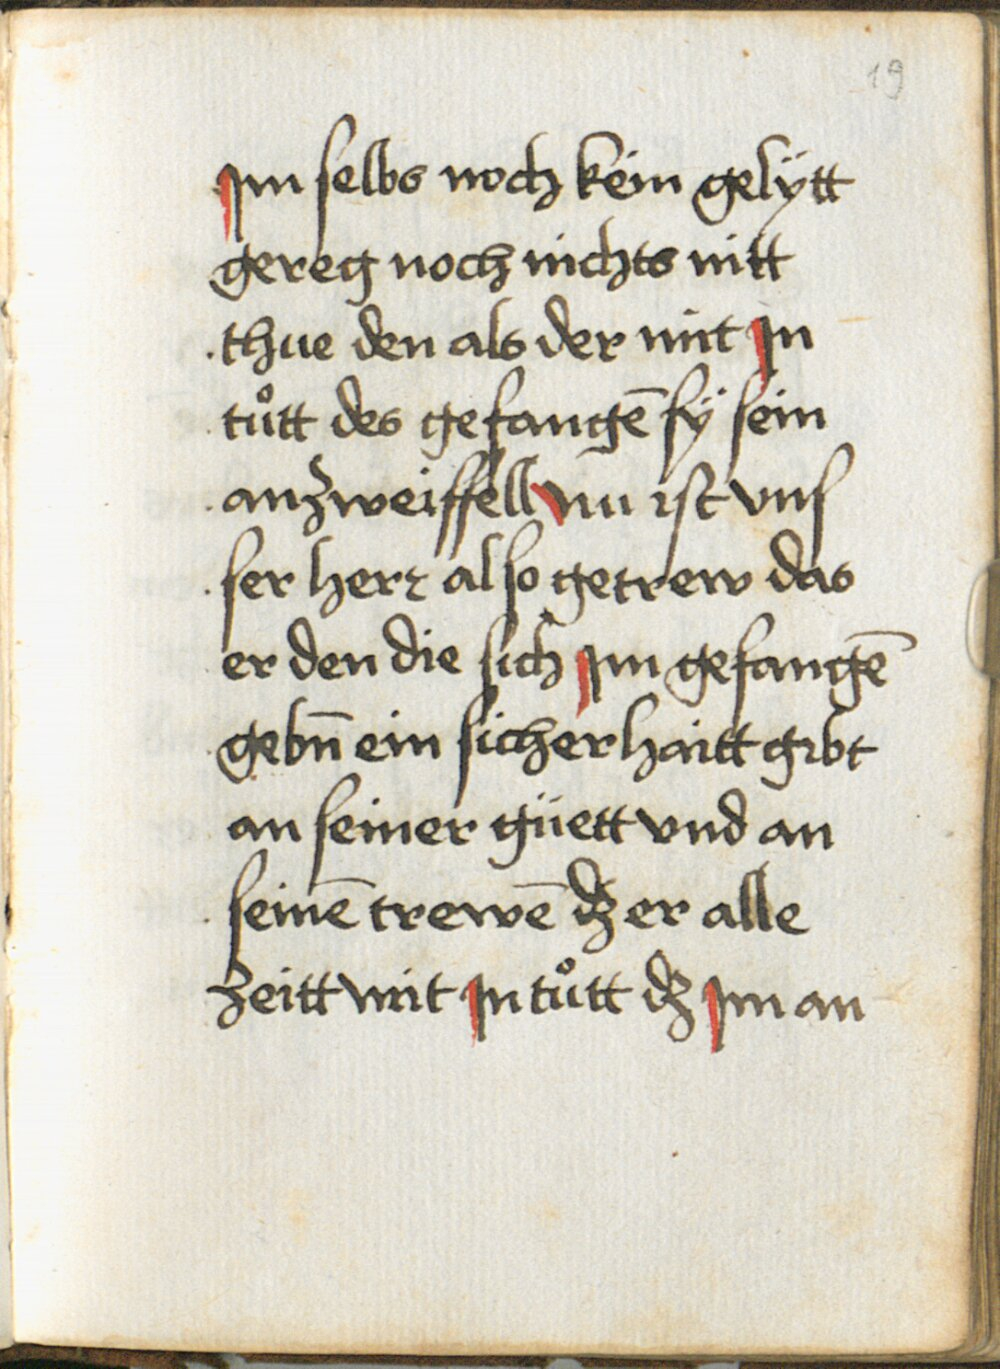 19
Im selbs noch kein gelÿtt
gereg noch nichts nitt
thue den als der mit In
tůtt des gefangē sÿ sein
anzweiffell nu ist vns
ser herz also getrew das
er den die sich Im gefangē
gebn̄ ein sicherhaitt gibt
an seiner güett vnd an
seinē trewē dz er alle
zeitt mit In tůtt dz Im an